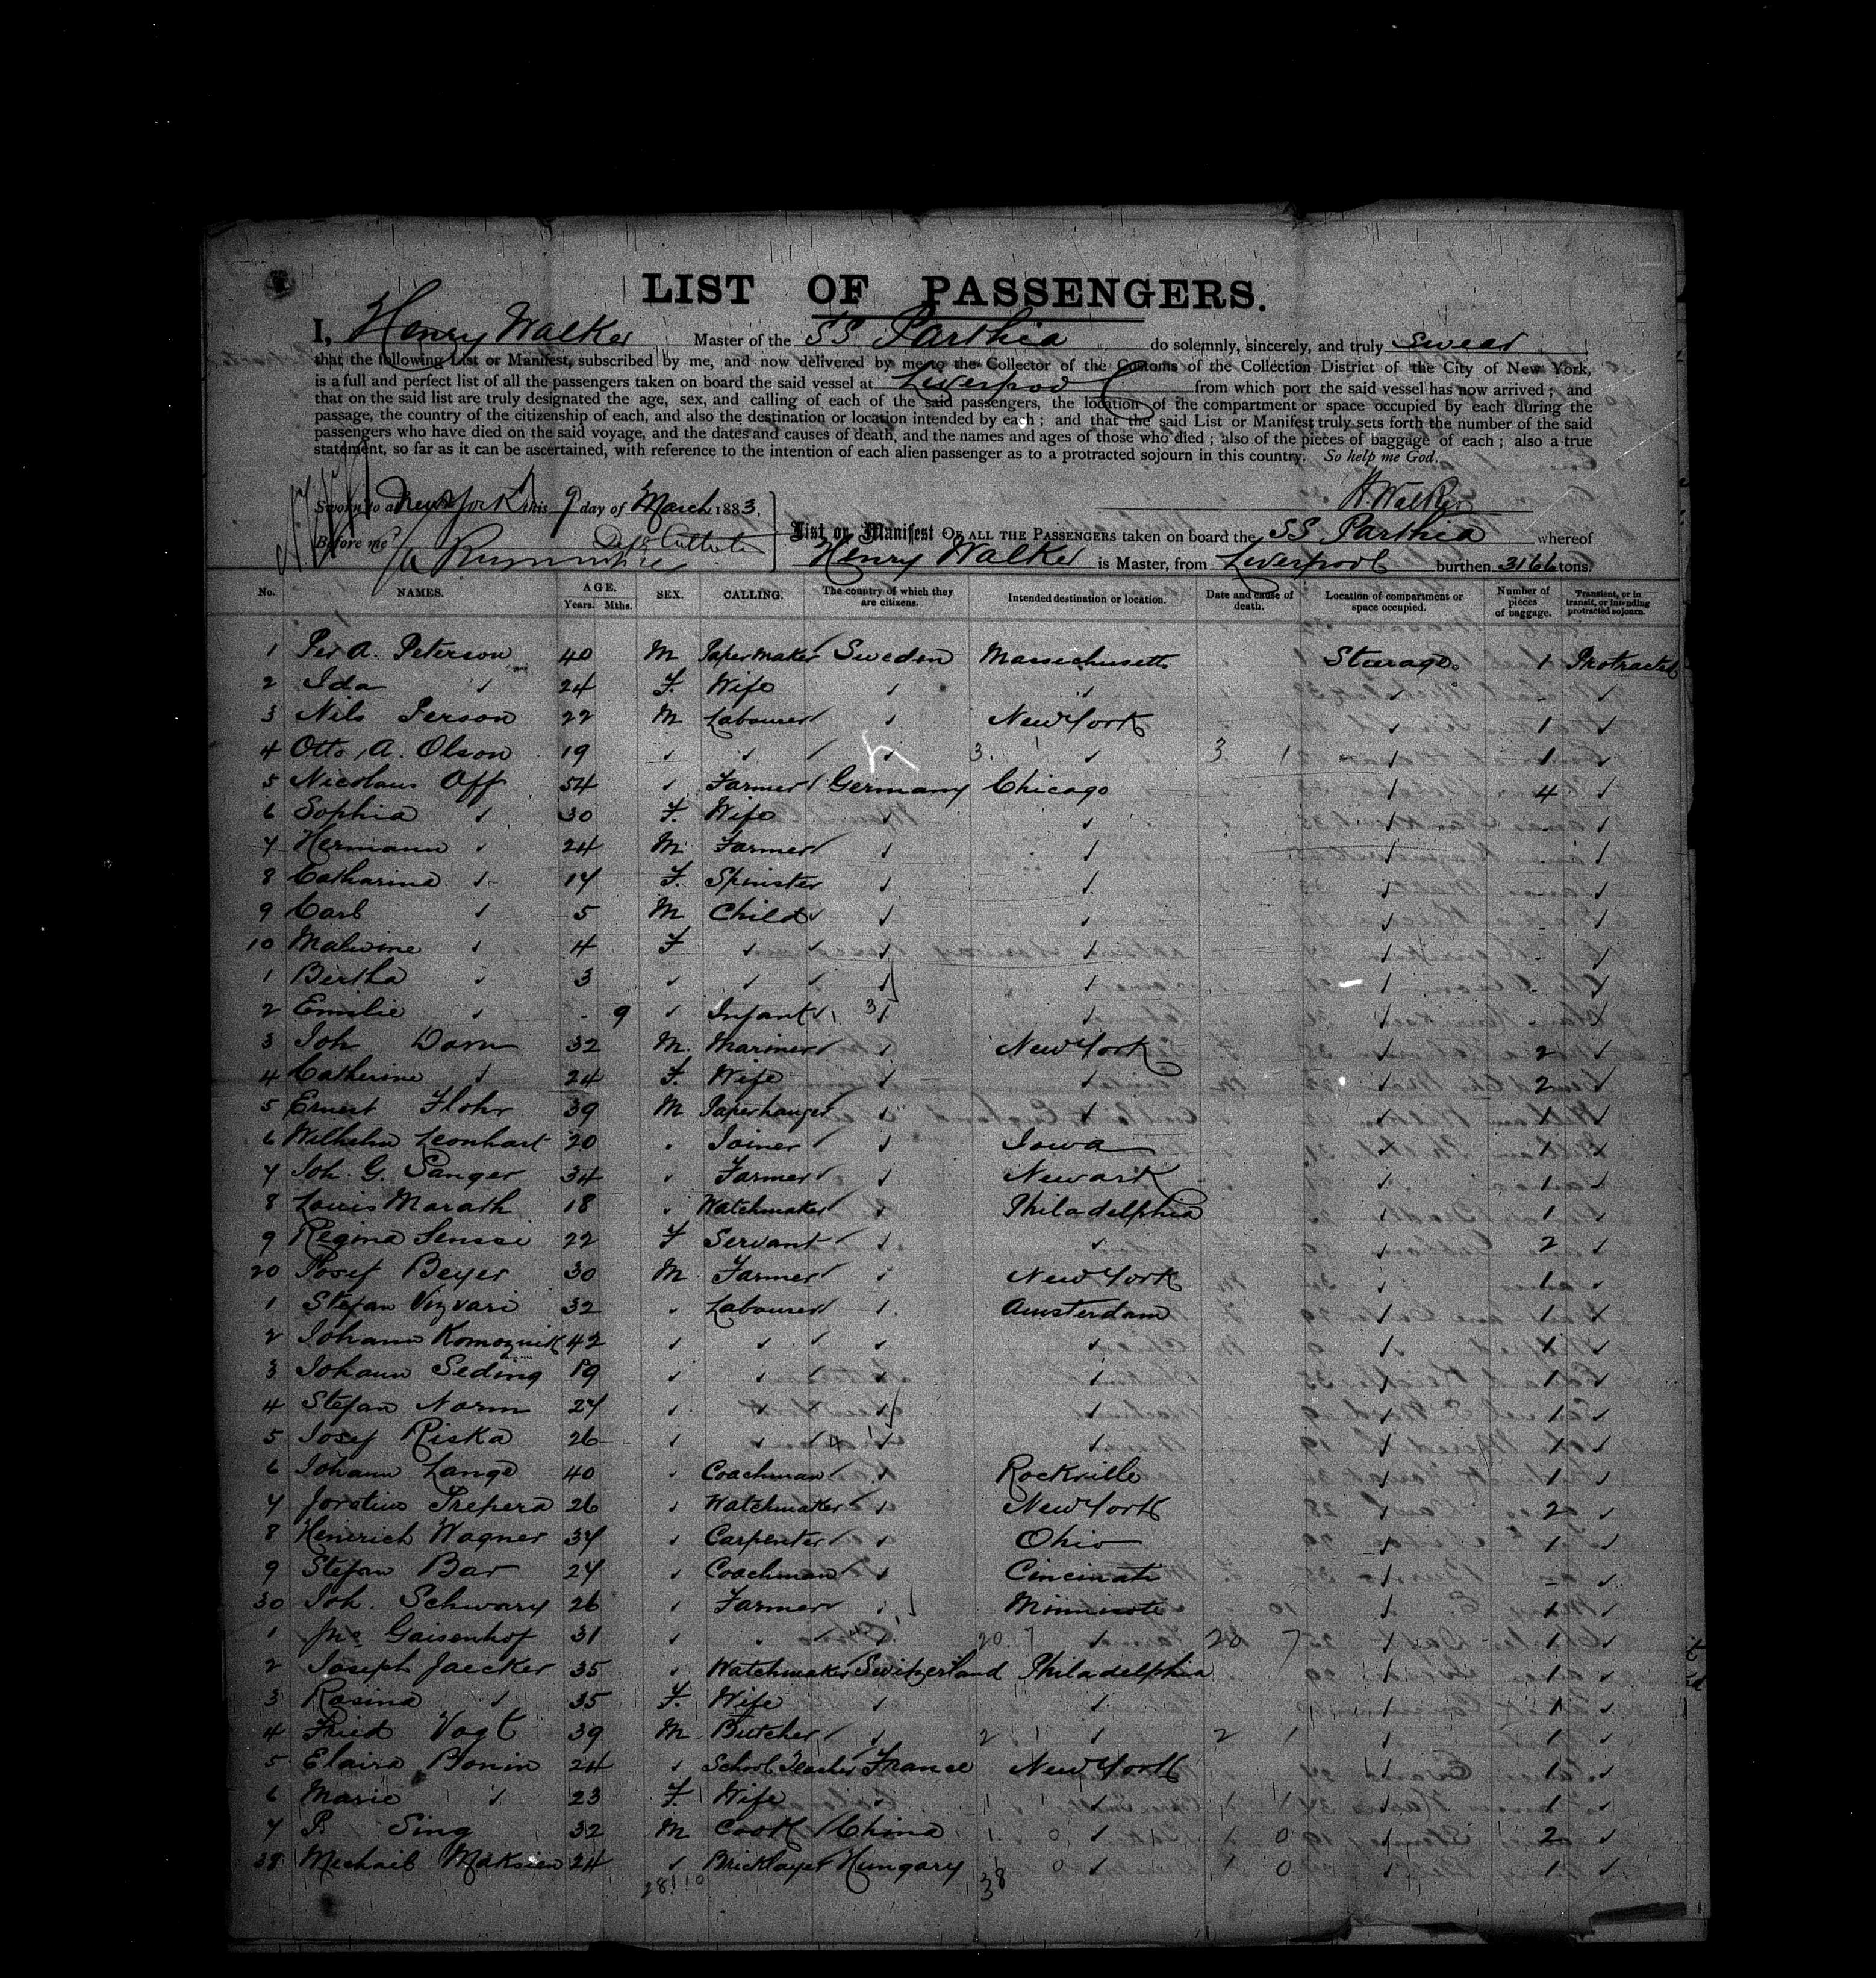 LIST OF PASSENGERS.
I, Henry Walker Master of the SS. Parthia do solemnly, sincerely, and truly swear
that the following List or Manifest, subscribed by me, and now delivered by me to the Collector of the Customs of the Collection District of the City of New York,
is a full and perfect list of all the passengers taken on board the said vessel at Liverpool from which port the said vessel has now arrived ; and
that on the said list are truly designated the age, sex, and calling of each of the said passengers, the location of the compartment or space occupied by each during the
passage, the country of the citizenship of each, and also the destination or location intended by each ; and that the said List or Manifest truly sets forth the number of the said
passengers who have died on the said voyage, and the dates and causes of death, and the names and ages of those who died ; also of the pieces of baggage of each ; also a true
statement, so far as it can be ascertained, with reference to the intention of each alien passenger as to a protracted sojourn in this country. So help me God.
Sworn to at New York this 9 day of March 1883. H. Walker
Before me List or Manifest OF ALL THE PASSENGERS taken on board the SS Parthia whereof
Henry Walker is Master, from Liverpool burthen 3166 tons.
No. NAMES. AGE. Years. Mths. SEX. CALLING. The country of which they are citizens. Intended destination or location. Date and cause of death. Location of compartment or space occupied. Number of pieces of baggage. Transient, or in transit, or intending protracted sojourn.
1 Per A. Peterson 40 M Papermaker Sweden Massachusetts Steerage 1 Protracted
2 Ida 24 F. Wife
3 Nils Person 22 M Labourer New York 1
4 Otto A. Olson 19 3. 1 3 1 1
5 Nicolaus Off 54 Farmer Germany Chicago 4
6 Sophia 30 F. Wife
7 Hermann 24 M Farmer
8 Catharine 17 F. Spinster
9 Carl 5 M Child
10 Malwine 4 F
1 Bertha 3
2 Emilie 9 Infant
3 Joh Dorn 32 M. Mariner New York 2
4 Catherine 24 F. Wife 2
5 Ernest Flohr 39 M Paperhanger 1
6 Wilhelm Leonhart 20 Joiner Iowa 1
7 Joh. G. Sanger 34 Farmer Newark 1
8 Louis Marath 18 Watchmaker Philadelphia 1
9 Regina 22 F Servant 2
20 Josef Beyer 30 M Farmer New York 1
1 Stefan Vizvari 32 Labourer Amsterdam 1
2 Johann 42 1
3 Johann Seding 19 1
4 Stefan Norm 27 1
5 Josef Riska 26 1
6 Johann Lange 40 Coachman Rockville 1
7 Prepera 26 Watchmaker New York 2
8 Heinrich Wagner 37 Carpenter Ohio 1
9 Stefan Bar 27 Coachman Cincinati
30 Joh. Schwarz 26 Farmer Minnisota 1
1 Jno Gaisenhof 31 20. 7 20 7 1
2 Joseph Jaecker 35 Watchmaker Switzerland Philadelphia 1
3 Rosina 35 F. Wife 1
4 Fried Vogt 39 M Butcher 2 1 2 1 1
5 Elaira Bonin 24 School Teacher France New York 1
6 Marie 23 F. Wife 1 1 1 1 1
7 P. Sing 32 M Cook China 1 0 1 0 2
38 Michail 24 Bricklayer Hungary 1 0 1 0 1
28 10 38